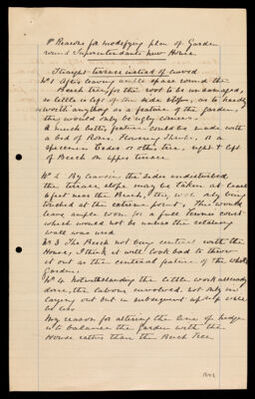 Reasons for modifying plan of Garden
round Superintendents House
Straight terrace instead of curved
No 1 After leaving ample space round the
Beech tree, for the root to be undamaged,
so little is left of the side slope, as to hardly
worth anything as a feature of the garden,
they would only be ugly corners.
A much better feature could be made with
a bed of Roses, Flowering Shrubs, or a
specimen Cedar or other tree, right & left
of Beech on upper terrace
No 2 By leaving the sides undisturbed
the terrace slope may be taken at least
6 feet near the Beech, this will only being
touched at the extreme point, this would
leave ample room for a full Tennis court
which would not be unless the retaining
wall was used
No 3 The Beech not being central with the
House, I think it will look bad to throw
it out as the central feature of the whole
Garden.
No 4 Notwithstanding the little work already
done, the labour involved not only in
carrying out but in subsequent upkeep will
be less
My reason for altering the line of hedge
is to balance the Garden with the
House rather than the Beech Tree